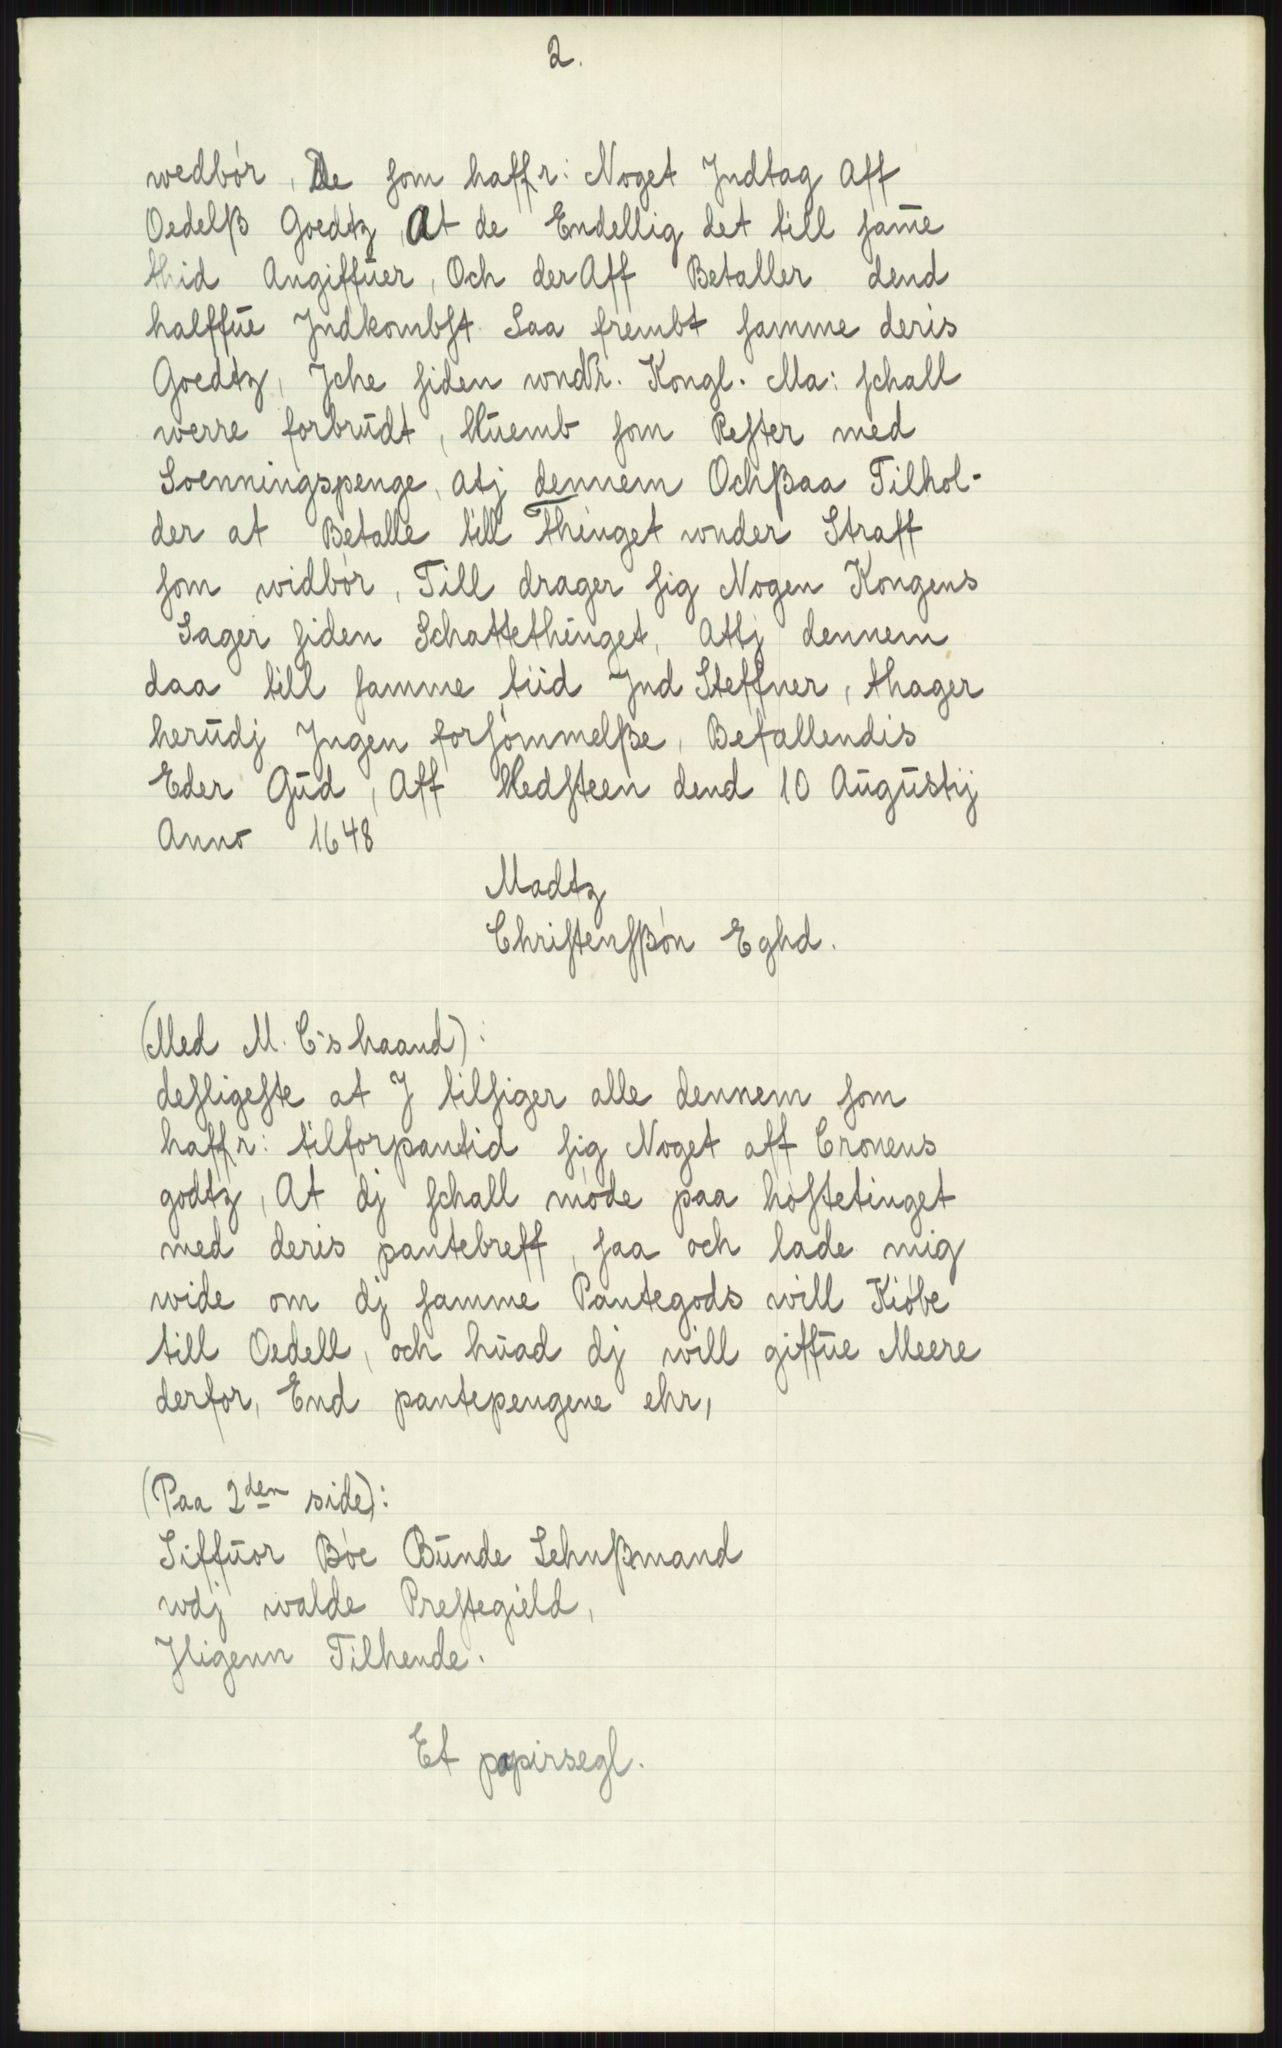 2.
wedbór, De som haffr: Noget Jndtag Aff
Oedelß Goedtz, At de Endellig det till sam̅e
thid Angiffūer, Och der Aff Betaller dend
halffūe Jndkombst Saa frembt samme deris
Goedtz, Jche siden wndr. Kongl. Ma: schall
werre forbrūdt, Hūemb som Rester med
Soenningspenge, atj dennem Ochßaa Tilhol-
der at Betalle till Thinget wnder Straff
som widbór, Till drager sig Nogen Kongens
Sager siden Schattethinget, Attj dennem
daa till samme tiid Jnd Steffner, thager
herūdj Jngen forsómmelße, Befallendis
Eder Gūd, Aff Hedsteen dend 10 Aūgūstij
Anno 1648
Madtz
Christensßón Eghd.
(Med M. C's haand):
desligeste at J tilsiger alle dennem som
haffr: tilforpantid sig Noget aff Cronens
godtz, At dj schall móde paa hóstetinget
med deris pantebreff, saa och lade mig
wide om dj samme Pantegods will Kióbe
till Oedell, och hūad dj will giffūe Meere
derfor, End pantepengene ehr,
(Paa 2den side):
Siffūor Bóe Būnde Lehnßmand
wdj walde Prestegield,
Jligenn Tilhende.
Et papirsegl.